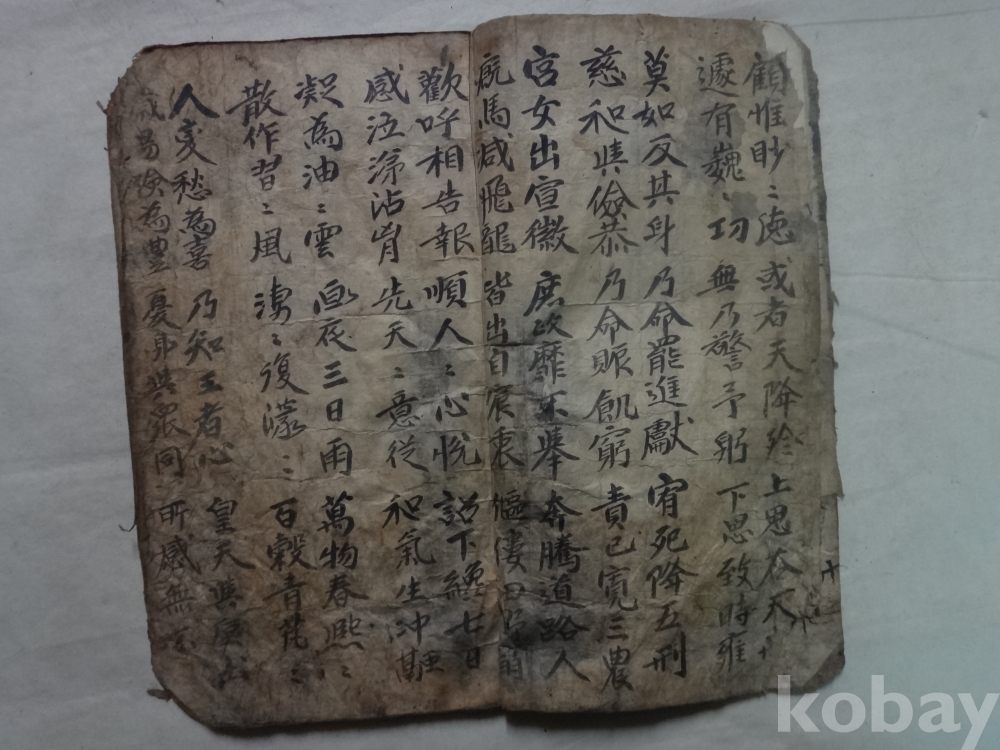 顧惟眇〻德 或者天降沴 上思答天
遽有巍〻功 無乃警予躬 下思致時雍
莫如反其身 乃命罷進獻 宥死降五刑
慈和與儉恭 乃命賑飢窮 責己寬三農
宮女出宣徽 庶政靡不舉 奔騰道路人
廐馬减飛龍 皆出自宸衷 傴僂田
歡呼相告報 順人〻心悅 詔下纔七日
感泣涕沾胷 先天〻意從 和氣生沖
凝為油〻雲 晝夜三日雨 萬物春熙〻
散作習〻風 凄〻復濛〻 百穀青芃〻
人変愁為喜 乃知王者心 皇天與
歲易險為豊 憂 與眾同 所感無